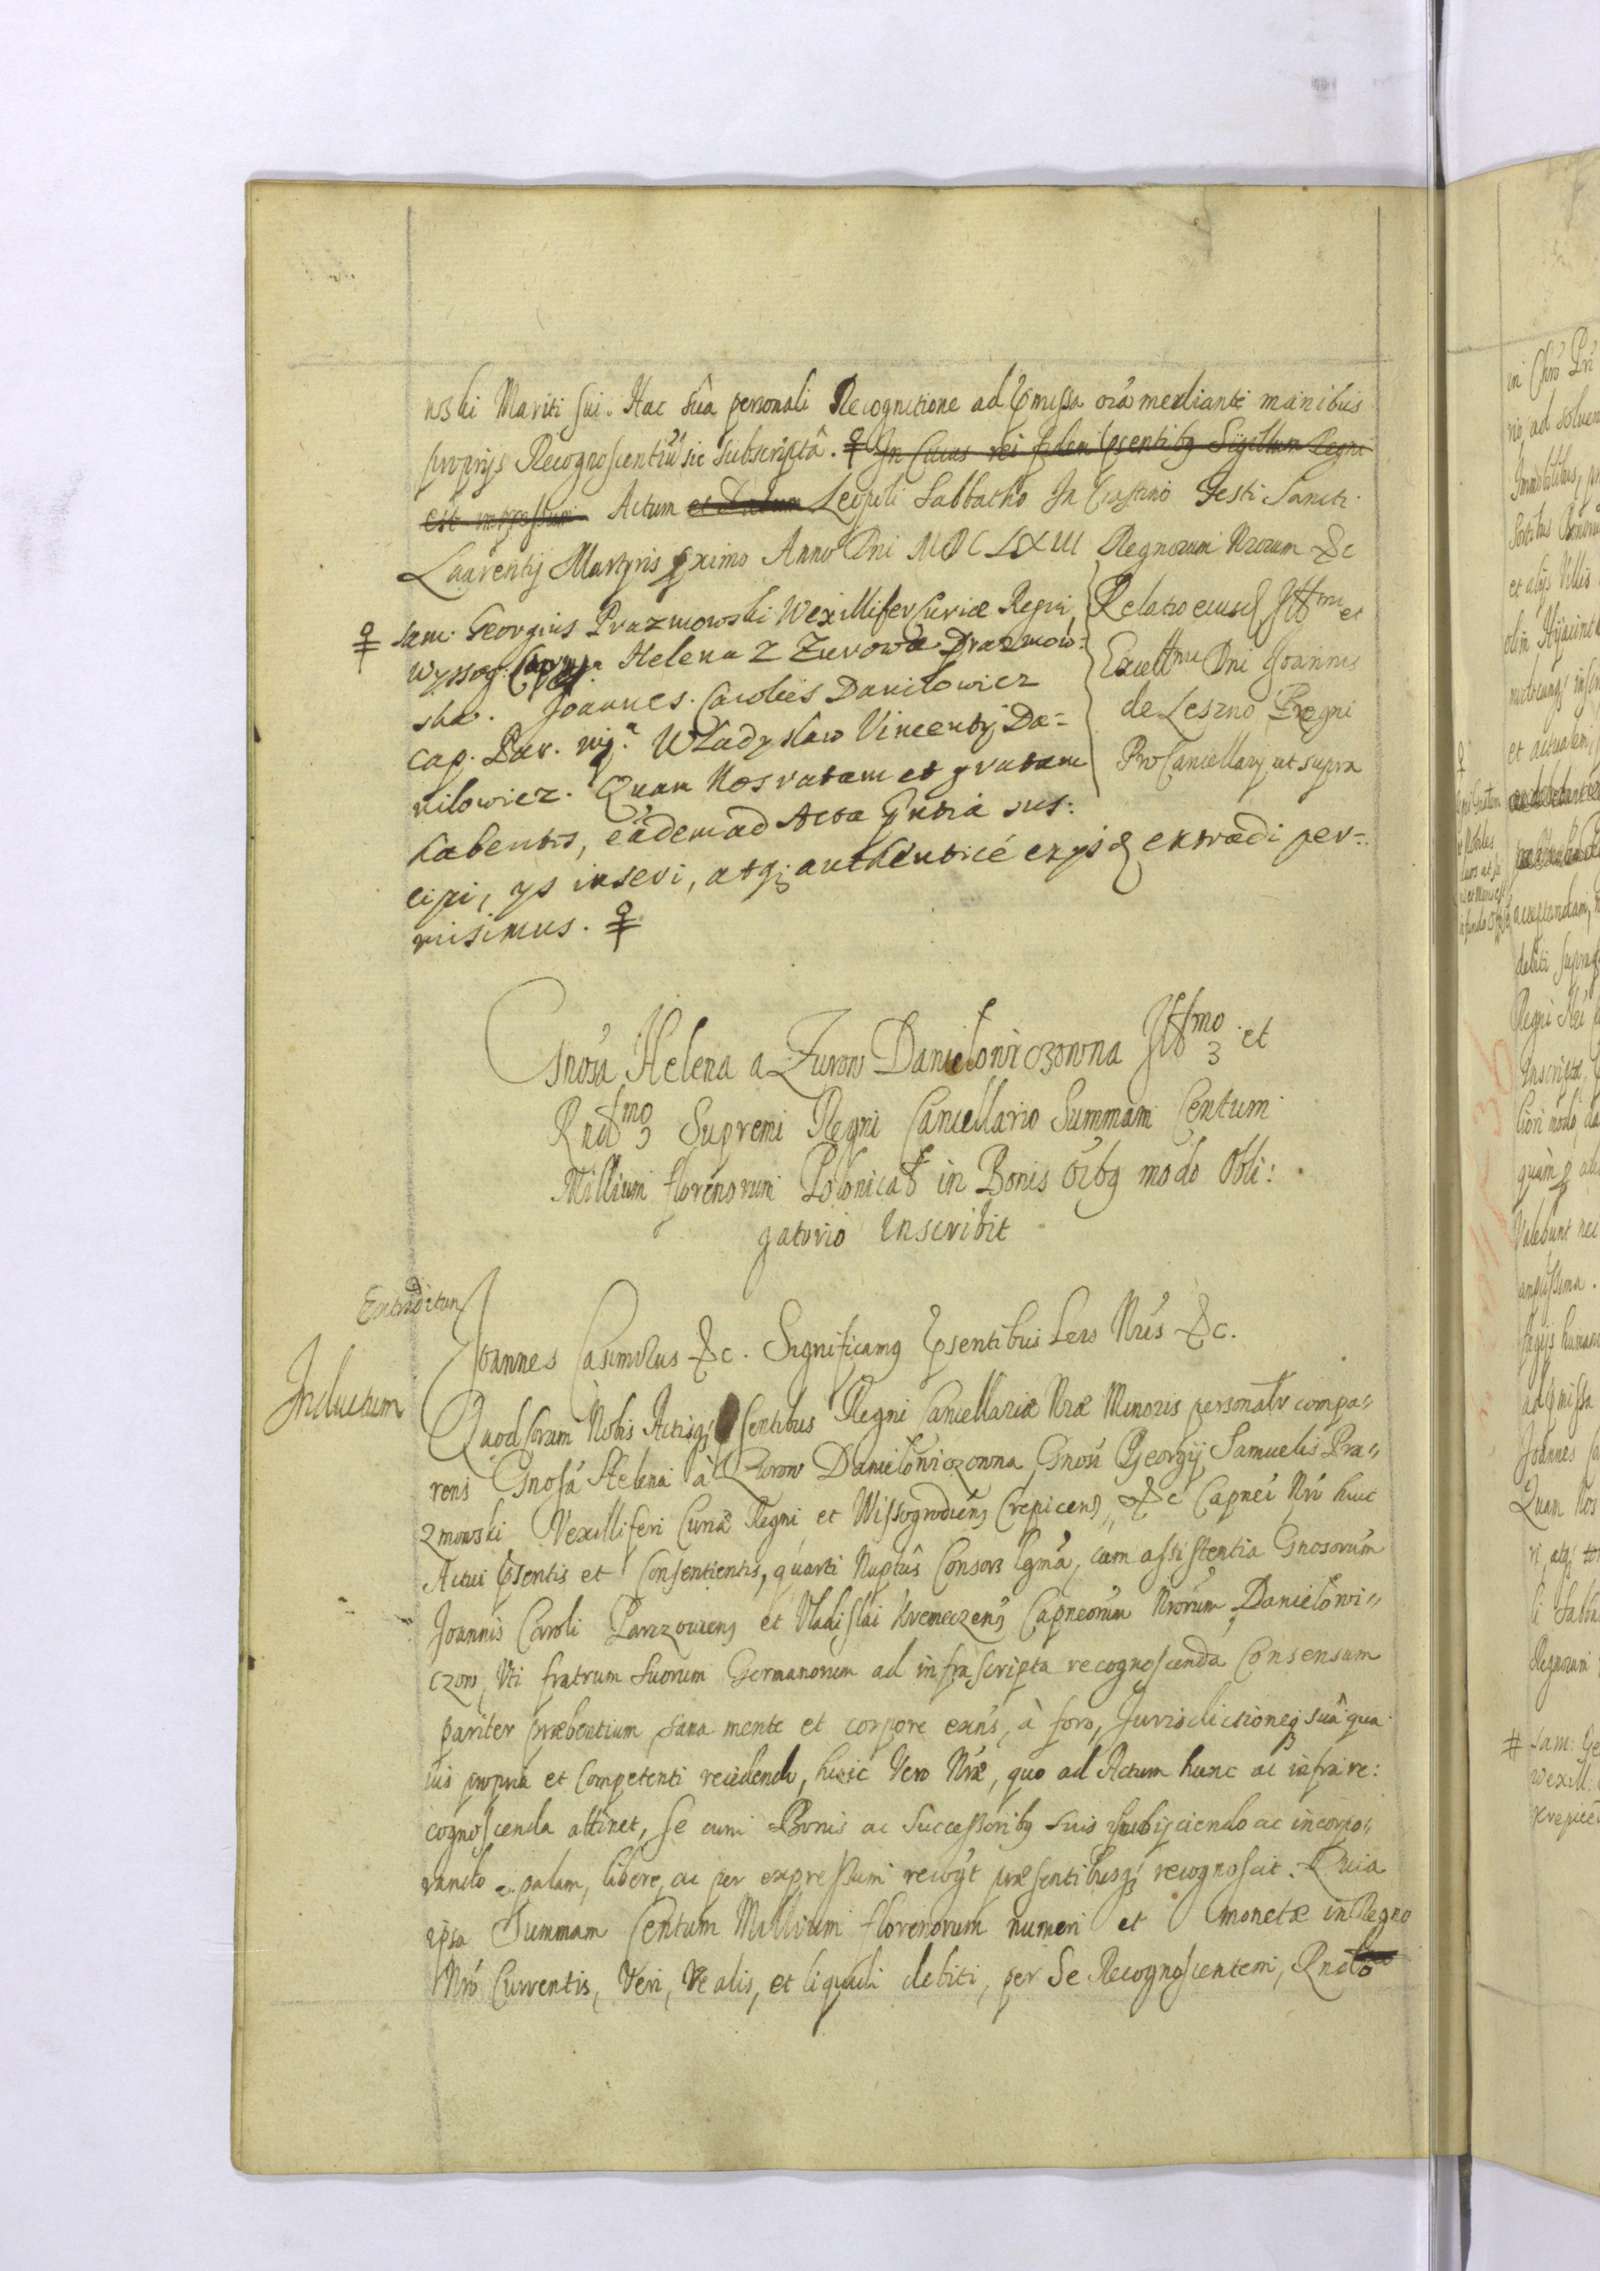 noski Mariti sui. Hac sua personali Recognitione ad pmissa oia mediante manibus
proprijs Recognoscentiu sic subscripta. In Cuius rei fidem psentibq Sigillum Regni
est impressum Actum et Datum Leopoli Sabbatho In Crastino Festi Sancti
Laurentij Martyris pximo Anno Dni MDCLXIII Regnorum Nrorum &c
Sam: Georgius Prazmowski Wexillifer Curiæ Regni,
Wyssog: Helena z Zurowa Prazmow:
ska. Joannes Carolus Danilowicz
cap. Par. Władysław Vincenty Da=
nilowicz. Quam Nos ratam et gratam
habentes, eadem ad Acta pntia sus:
cipi, ys inseri, atq; authentice extradi per=
misimus.
Relatio eiusd Illmi et
Excellmi Dni Joannis
de Leszno Regni
ProCancellarij ut supra
Gnosa Helena a Zurow Danielowiczowna Illmo et
Rndmo Supremi Regni Cancellario Summam Centum
Millium florenorum Polonical in Bonis oibq modo Obli:
gatorio Inscribit
Extraditum
Inductum
Joannes Casimirus &c. Significamq psentibus Lris Nris &c.
Quod coram Nobis Actisq; psentibus Regni Cancellariæ Nræ Minoris personalr compa"
rens Gnosa Helena à Zurow Danielowiczowna, Gnosi Georgij Samuelis Pra"
zmowski Vexilliferi Curiæ Regni et Wissogrodien Crepicen, &c Capnei Nri huic
Actui psentis et Consentientis, quarti Nuptus Consors lgma, cum assistentia Gnosorum
Joannis Caroli Parczowien et Vladislai Kremeczen Capneorum Nrorum, Danielowi"
czow, Uti fratrum suorum Germanorum ad infrascripta recognoscenda Consensum
pariter præbentium sana mente et corpore exns, à foro, Jurisdictioneq sua qua
vis propria et Competenti recedendo, huic Vero Nræ, quo ad Actum hunc ac infra re:
cognoscenda attinet, se cum Bonis ac Successoribq suis subijciendo ac incorpo"
rando palam, libere, ac per expressum recogt præsentibusq; recognoscit. Quia
ipsa Summam Centum Millium florenorum numeri et monetæ in Regno
Nro Currentis, Veri, Realis, et liquidi debiti, per Se Recognoscentem, Rndo